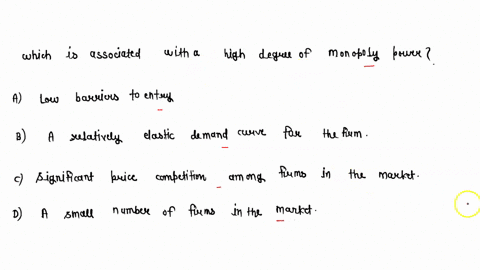 which is associated with a high degree of monopoly power?
A) Low barriers to entry
B) A relatively elastic demand curve for the firm.
C) Significant price competition among firms in the market.
D) A small number of firms in the market.